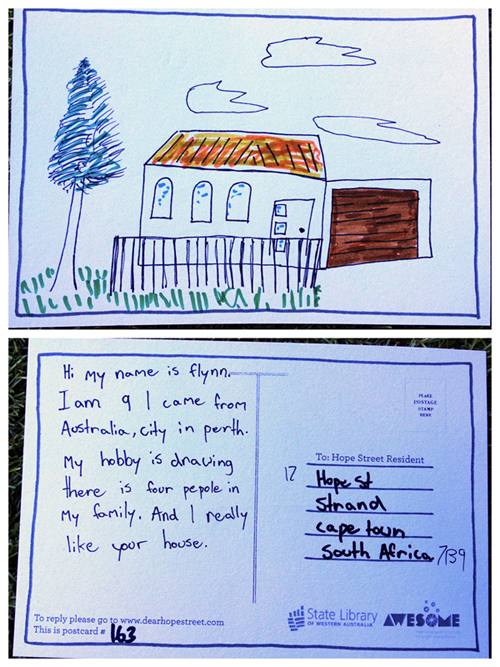 Hi My name is flynn.
I am 9 I came from
Australia, city in perth.
My hobby is drawing
there is four pepole in
My family. And I really
like your house.
PLACE
POSTAGE
STAMP
HERE
To: Hope Street Resident
12 Hope st
Strand
cape town
South Africa 7139
To reply please go to www.dearhopestreet.com
This is postcard # 163
State Library
OF WESTERN AUSTRALIA
AWESOME